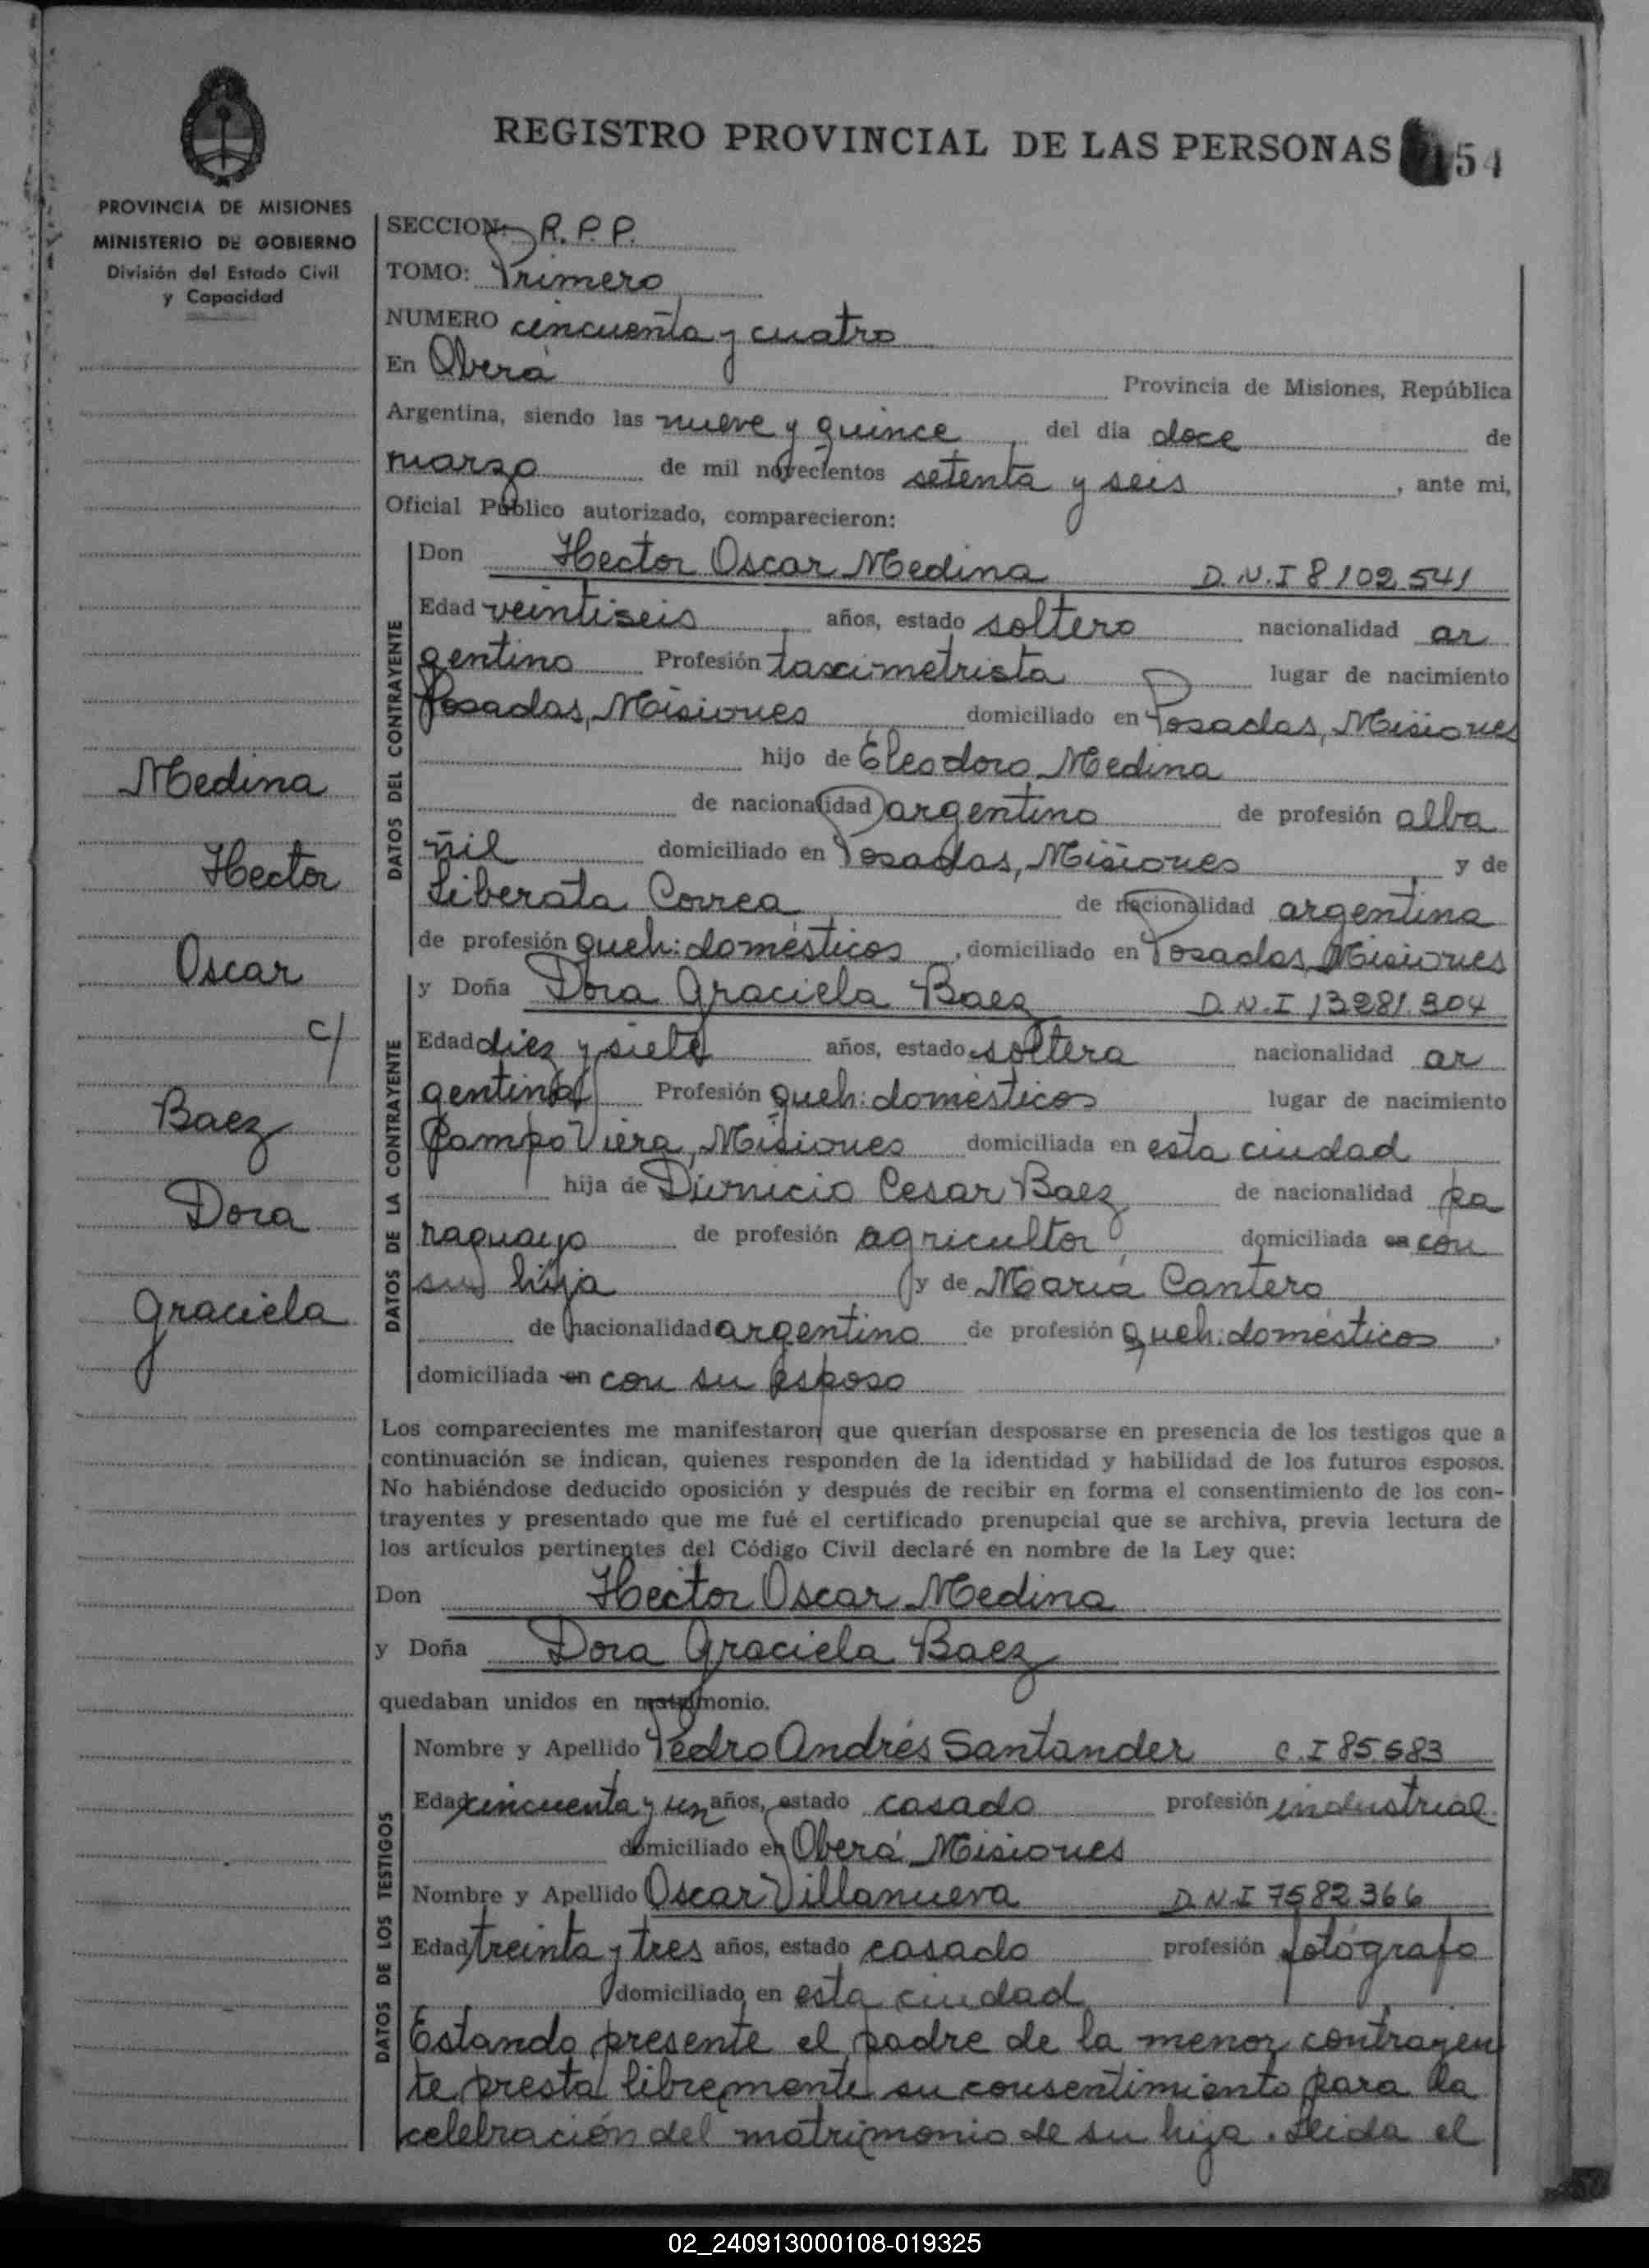 REGISTRO PROVINCIAL DE LAS PERSONAS 54
PROVINCIA DE MISIONES
MINISTERIO DE GOBIERNO
División del Estado Civil
y Capacidad
SECCION: R. P. P.
TOMO: Primero
NUMERO cincuenta y cuatro
En Oberá Provincia de Misiones, República
Argentina, siendo las nueve y quince, del día doce de
marzo de mil novecientos setenta y seis, ante mi,
Oficial Público autorizado, comparecieron:
DATOS DEL CONTRAYENTE
Don Hector Oscar Medina D.N.I 8102541
Edad veintiseis años, estado soltero nacionalidad ar
gentino Profesión taximetrista lugar de nacimiento
Posadas, Misiones domiciliado en Posadas, Misiones
hijo de Eleodoro Medina
de nacionalidad argentino de profesión alba
ñil domiciliado en Posadas, Misiones, y de
Liberata Correa de nacionalidad argentina
de profesión queh: domésticos, domiciliado en Posadas, Misiones
DATOS DE LA CONTRAYENTE
y Doña Dora Graciela Baez D.N.I 13281.304
Edad diez y siete años, estado soltera nacionalidad ar
gentina Profesión queh: domésticos lugar de nacimiento
Campo Viera, Misiones domiciliada en esta ciudad
hija de Dionicio Cesar Baez de nacionalidad pa
raguayo de profesión agricultor, domiciliada en con
su hija y de María Cantero
de nacionalidad argentina de profesión queh: domésticos,
domiciliada en con su esposo
Medina
Hector
Oscar
c/
Baez
Dora
Graciela
Los comparecientes me manifestaron que querían desposarse en presencia de los testigos que a
continuación se indican, quienes responden de la identidad y habilidad de los futuros esposos.
No habiéndose deducido oposición y después de recibir en forma el consentimiento de los con-
trayentes y presentado que me fué el certificado prenupcial que se archiva, previa lectura de
los artículos pertinentes del Código Civil declaré en nombre de la Ley que:
Don Hector Oscar Medina
y Doña Dora Graciela Baez
quedaban unidos en matrimonio.
DATOS DE LOS TESTIGOS
Nombre y Apellido Pedro Andrés Santander C.I 85.683
Edad cincuenta y un años, estado casado profesión industrial
domiciliado en Oberá Misiones
Nombre y Apellido Oscar Villanueva D.N.I 7582366
Edad treinta y tres años, estado casado profesión fotógrafo
domiciliado en esta ciudad
Estando presente el padre de la menor contrayen
te presta libremente su consentimiento para la
celebración del matrimonio de su hija. Leida el
02_240913000108-019325